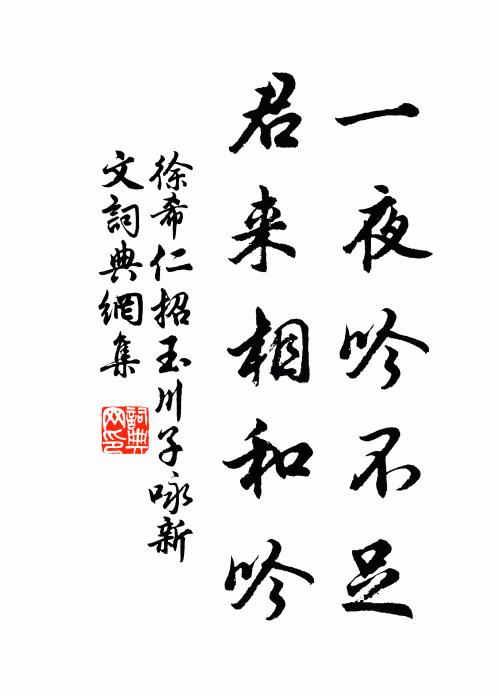 一夜吟不足
君来相和吟
徐希仁招玉川子咏新
文詞典網集
詞典网印